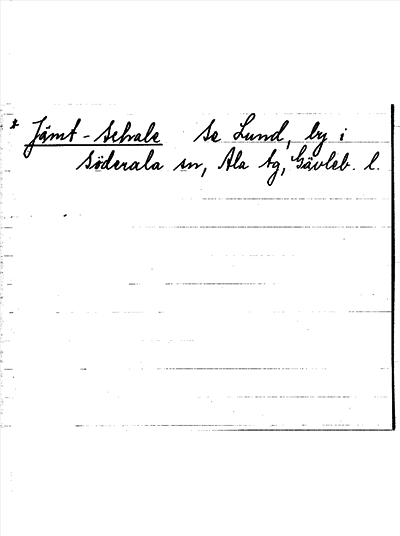 * Jämt-Schale Se Lund, by i
Söderala sn, Ala tg, Gävleb. l.